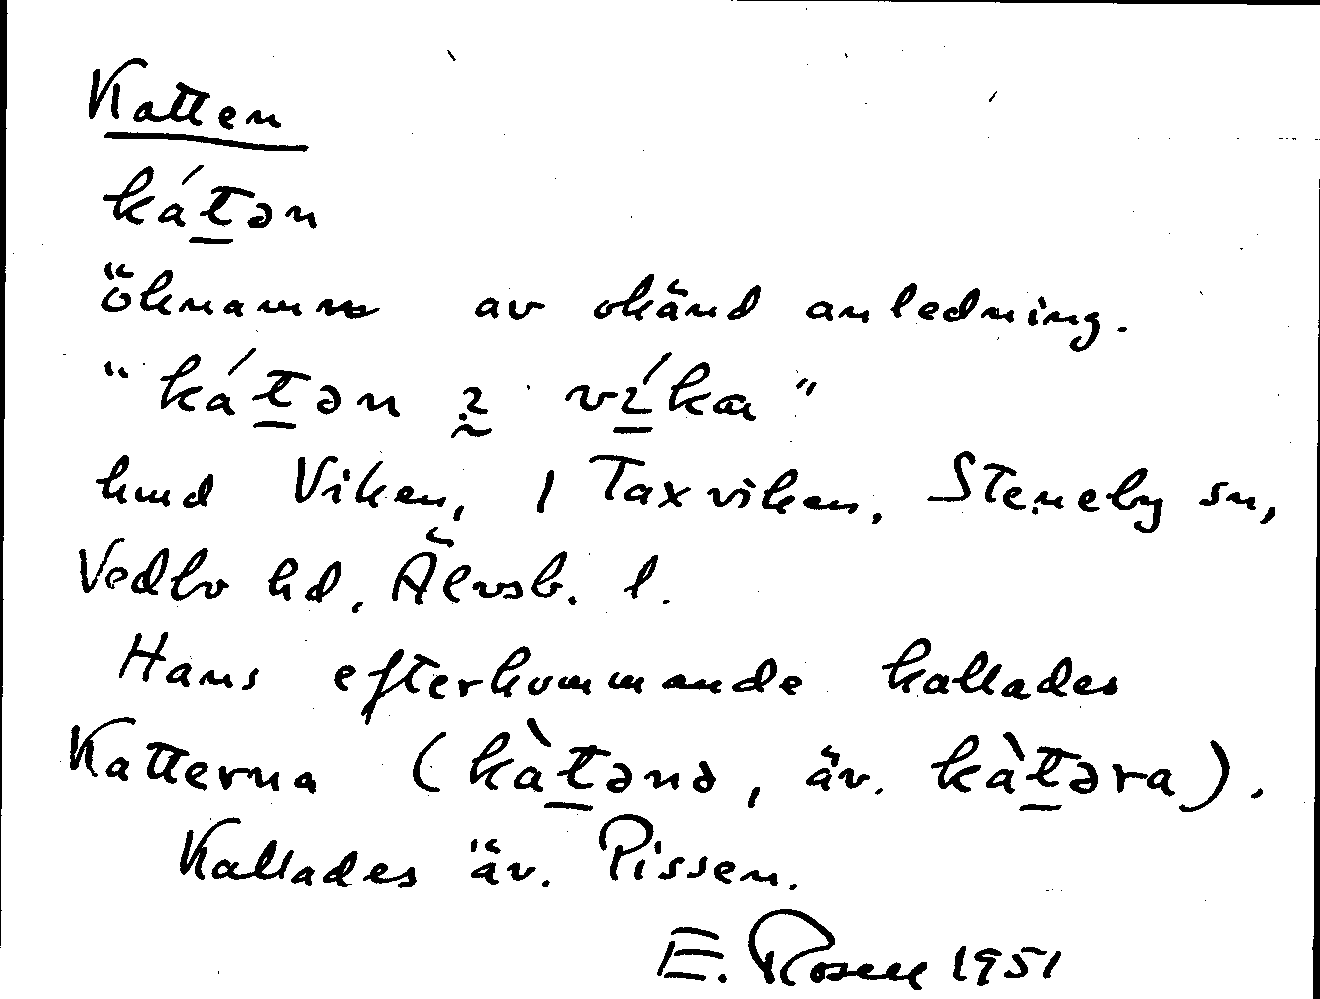 Katten
kátən
öknamn av okänd anledning.
"kátən i víka"
hmd Viken, 1 Taxviken, Steneby sn,
Vedbo hd, Älvsb. l.
Hans efterkommande kallades
Katterna (kàtənə, äv. kàtəra).
Kallades äv. Pissen.
E. Rosell 1951